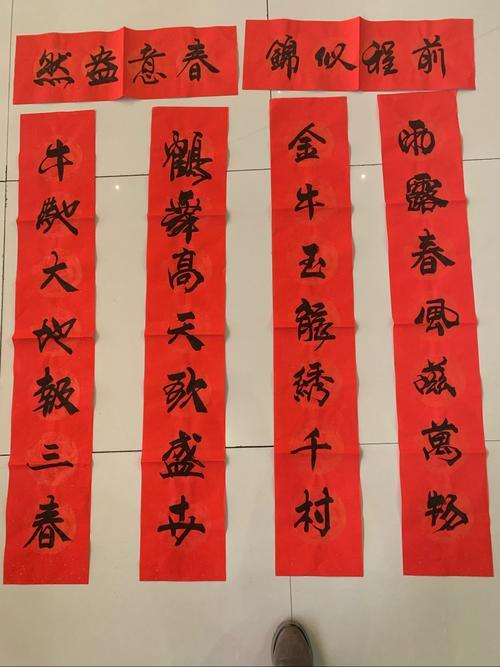 前程似錦
春意盎然
雨露春風滋萬物
金牛玉龍綉千村
鶴舞高天歌盛世
牛馳大地報三春